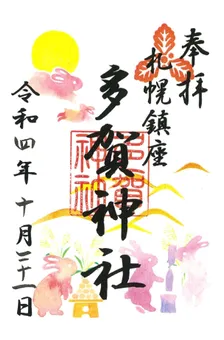 奉拝
札幌鎮座
多賀神社
多賀
神社
令和四年十月二十一日